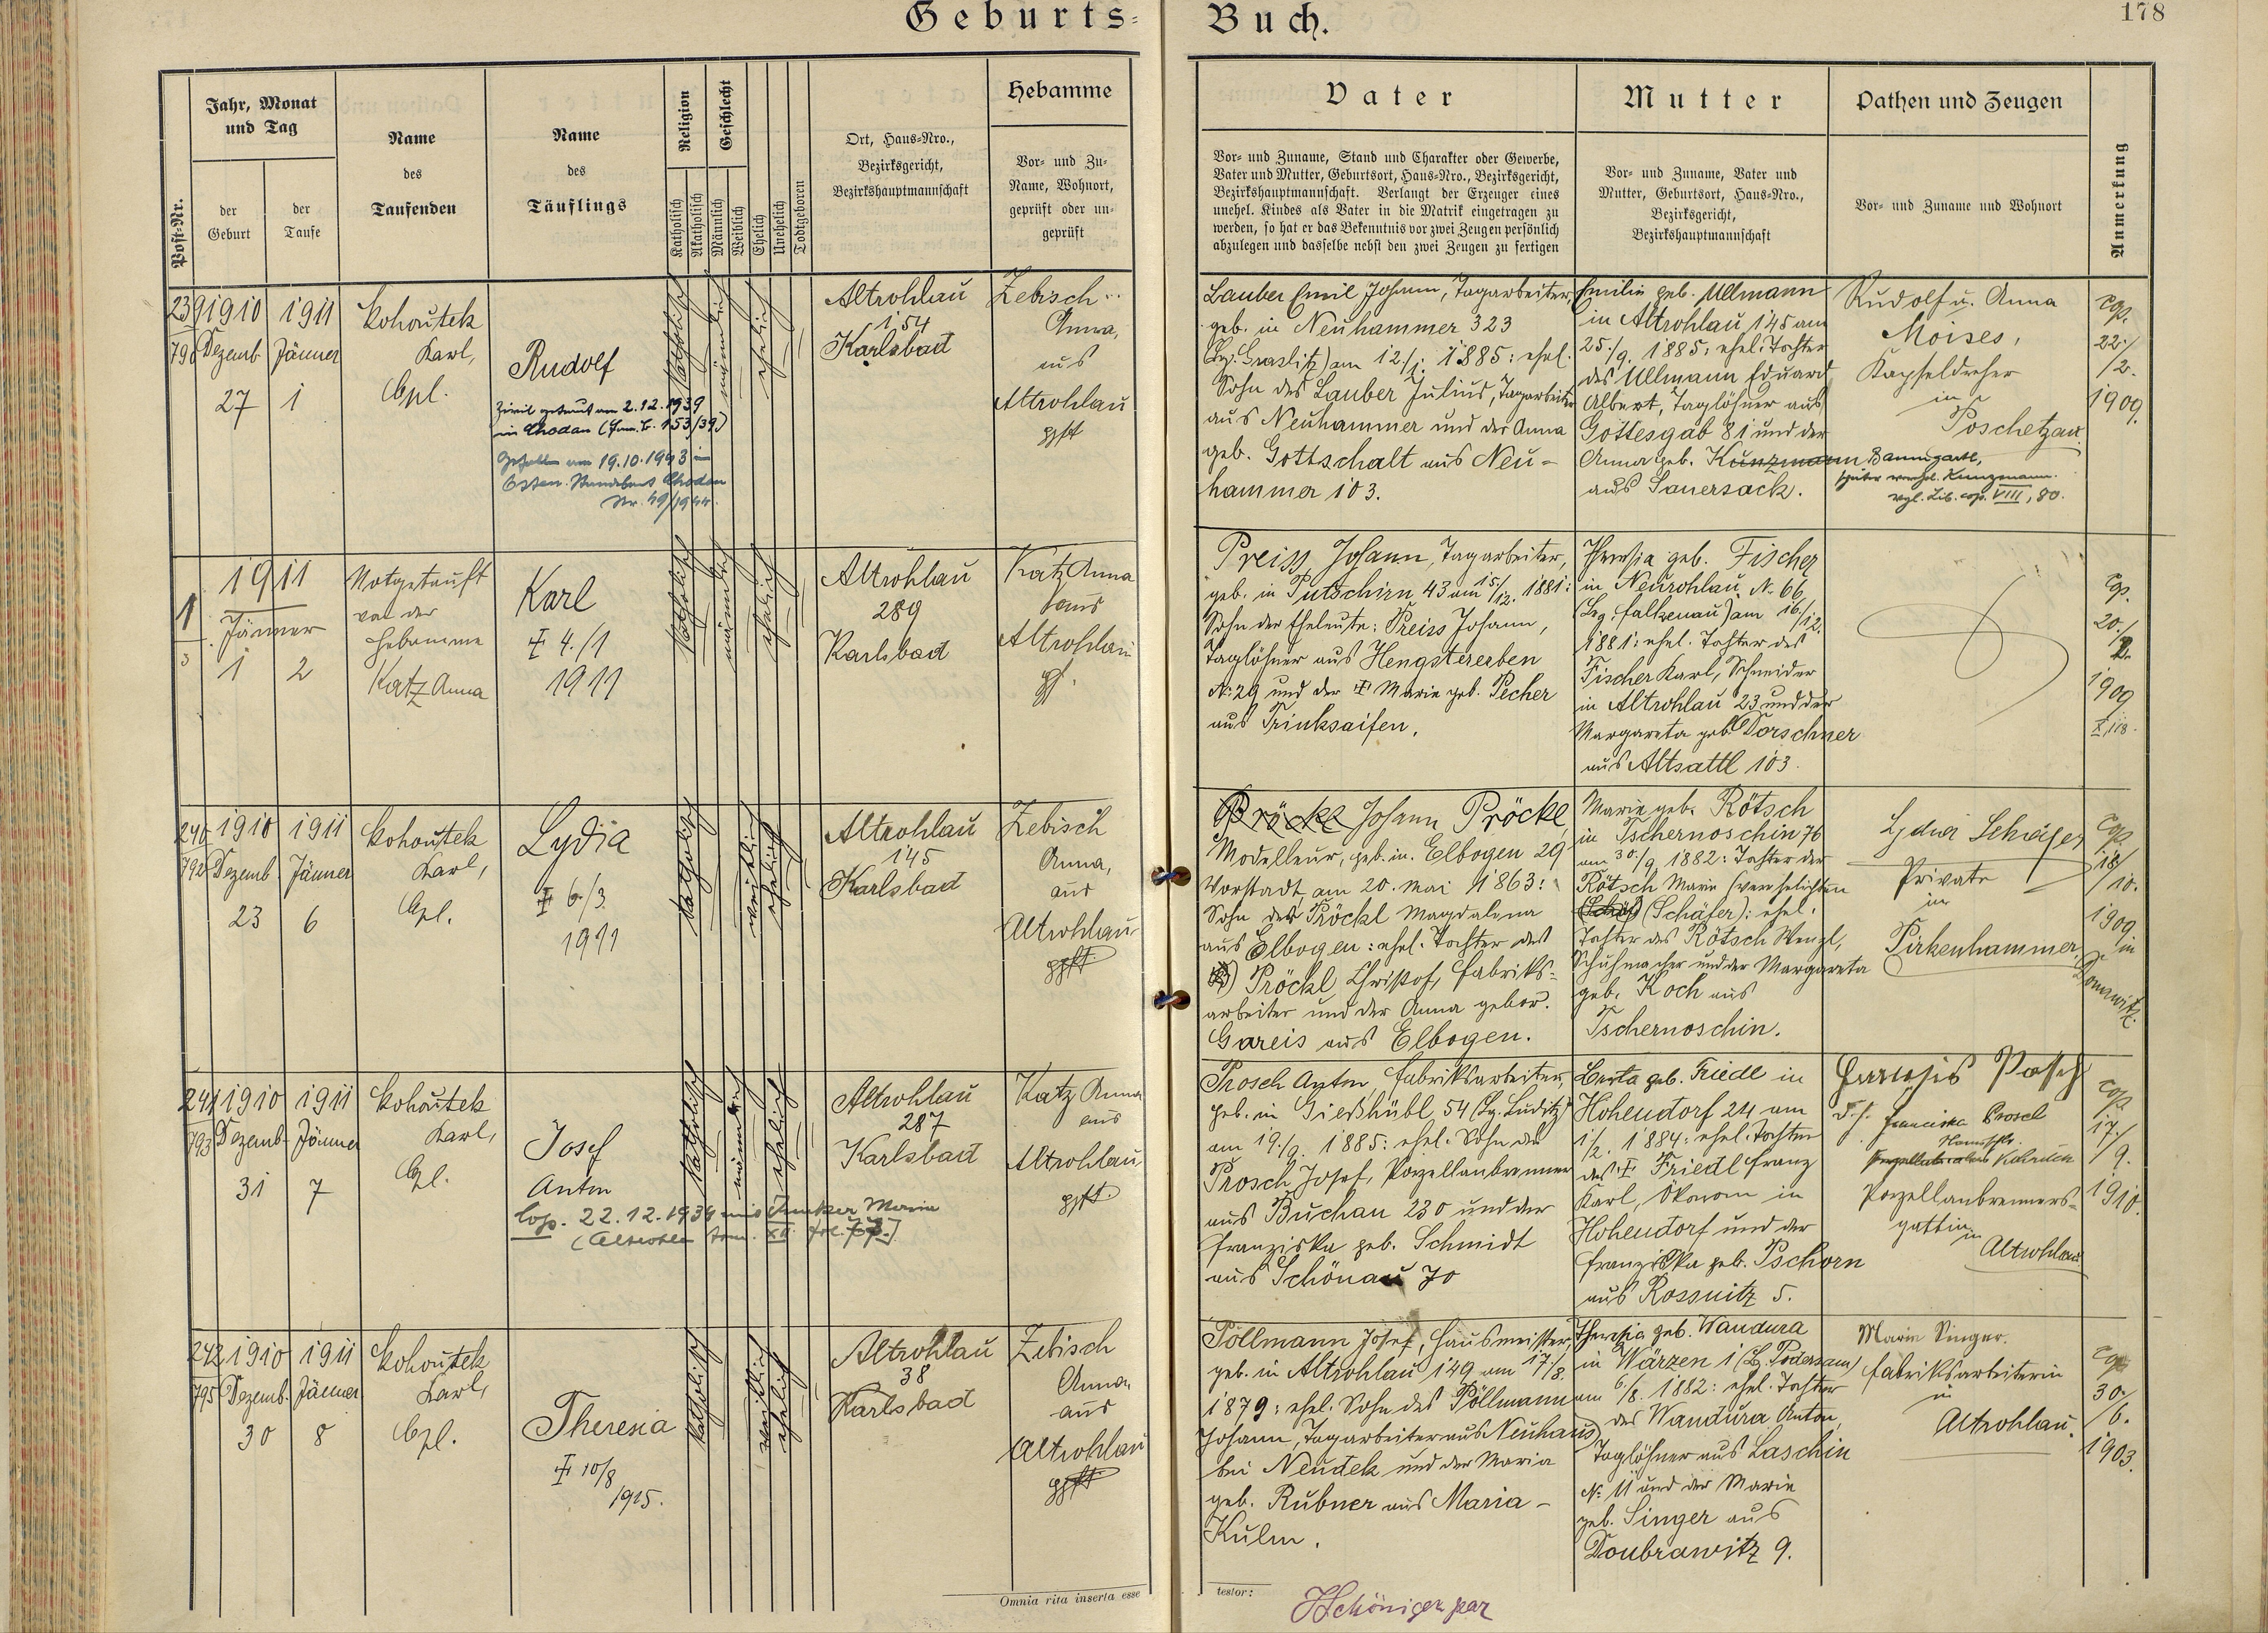 Geburts-
Buch.
178
Post-Nr.
Jahr, Monat
und Tag
der
Geburt
der
Taufe
Name
des
Taufenden
Name
des
Täuflings
Religion
Katholisch
Akatholisch
Geschlecht
Männlich
Weiblich
Ehelich
Unehelich
Todtgeboren
Ort, Haus-Nro.,
Bezirksgericht,
Bezirkshauptmannschaft
Hebamme
Vor- und Zu-
Name, Wohnort,
geprüft oder un-
geprüft
Vater
Vor- und Zuname, Stand und Charakter oder Gewerbe,
Vater und Mutter, Geburtsort, Haus-Nro., Bezirksgericht,
Bezirkshauptmannschaft. Verlangt der Erzeuger eines
unehel. Kindes als Vater in die Matrik eingetragen zu
werden, so hat er das Bekenntnis vor zwei Zeugen persönlich
abzulegen und dasselbe nebst den zwei Zeugen zu fertigen
Mutter
Vor- und Zuname, Vater und
Mutter, Geburtsort, Haus-Nro.,
Bezirksgericht,
Bezirkshauptmannschaft
Pathen und Zeugen
Vor- und Zuname und Wohnort
Anmerkung
239
790
1910
Dezemb.
27
1911
Jänner
1
Kohoutek
Karl,
Cpl.
Rudolf
Zivil getraut am 2.12.1939
in Chodau (Fam. B. 153/39)
Gefallen am 19.10.1943 im
Osten. Standesamt Chodau
Nr. 49/1944.
katholisch
männlich
ehelich
Altrohlau
154
Karlsbad
Zebisch
Anna,
aus
Altrohlau
gpft
Lauber Emil Johann, Tagarbeiter,
geb. in Neuhammer 323
(Bz. Graslitz) am 12./1. 1885: ehel.
Sohn des Lauber Julius, Tagarbeiter
aus Neuhammer und der Anna
geb. Gottschalt aus Neu-
hammer 103.
Emilie geb. Ullmann
in Altrohlau 145 am
25./9. 1885: ehel. Tochter
des Ullmann Eduard
Albert, Taglöhner aus
Gottesgab 81 und der
Anna geb. Kunzmann Baumgartl,
aus Sauersack.
später verehel. Kunzmann.
vgl. Lib. cop. VIII, 80.
Rudolf u. Anna
Moises,
Kapseldreher
in
Poschetzau.
cop.
22./
/2.
1909.
1
3
1911
Jänner
1
2
Notgetauft
von der
Hebamme
Katz Anna
Karl
4./1
1911
katholisch
männlich
ehelich
Altrohlau
289
Karlsbad
Katz Anna
aus
Altrohlau
gpft.
Preiss Johann, Tagarbeiter,
geb. in Putschirn 43 am 15./12. 1881:
Sohn der Eheleute: Preiss Johann,
Taglöhner aus Hengstererben
N. 29 und der Marie geb. Pecher
aus Trinksaifen.
Theresia geb. Fischer
in Neurohlau N. 66
(Bz. Falkenau) am 16./12.
1881: ehel. Tochter des
Fischer Karl, Schneider
in Altrohlau 23 und der
Margareta geb. Dorschner
aus Altsattl 103.
cop.
20./
/2.
1909
X, 118.
240
792
1910
Dezemb.
23
1911
Jänner
6
Kohoutek
Karl,
Cpl.
Lydia
6./3.
1911
katholisch
weiblich
ehelich
Altrohlau
145
Karlsbad
Zebisch
Anna,
aus
Altrohlau
gpft.
Pröckl Johann Pröckl,
Modelleur, geb. in Elbogen 29
Vorstadt, am 20. Mai 1863:
Sohn der Pröckl Magdalena
aus Elbogen: ehel. Tochter des
Pröckl Christof, Fabriks-
arbeiter und der Anna gebor.
Gareis aus Elbogen.
Marie geb. Rötsch
in Tschernoschin 76
am 30./9. 1882: Tochter der
Rötsch Marie (verehelichten
(Schäfer): ehel.
Tochter des Rötsch Wenzl,
Schuhmacher und der Margareta
geb. Koch aus
Tschernoschin.
Lydia Schäfer
Private
in
Pirkenhammer.
cop.
18/
/10.
1909
in
Donawitz.
241
793
1910
Dezemb.
31
1911
Jänner
7
Kohoutek
Karl,
Cpl.
Josef
Anton
Cop. 22.12.1934 mit Junker Maria
(Altrohlau tom. XII fol.
katholisch
männlich
ehelich
Altrohlau
287
Karlsbad
Katz Anna
aus
Altrohlau
gpft.
Prosch Anton, Fabriksarbeiter,
geb. in Gießhübl 54 (Bz. Luditz)
am 19./9. 1885: ehel. Sohn des
Prosch Josef, Porzellanbrenner
aus Buchau 230 und der
Franziska geb. Schmidt
aus Schönau 70
Berta geb. Friedl in
Hohendorf 24 am
1/2. 1884: ehel. Tochter
des Friedl Franz
Karl, Ökonom in
Hohendorf und der
Franziska geb. Pschorn
aus Rossnitz 5.
Franziska Prosch
d. h. Franciska Prosch
Porzellanbrenners-
gattin
in
Altrohlau
cop.
17./
/9.
1910.
242
795
1910
Dezemb.
30
1911
Jänner
8
Kohoutek
Karl,
Cpl.
Theresia
10/8
1915.
katholisch
weiblich
ehelich
Altrohlau
38
Karlsbad
Zebisch
Anna,
aus
Altrohlau
gpft
Pöllmann Josef, Hausmeister,
geb. in Altrohlau 149 am 17./8.
1879: ehel. Sohn des Pöllmann
Johann, Tagarbeiter aus Neuhaus
bei Neudek und der Maria
geb. Rubner aus Maria-
Kulm.
Theresia geb. Wandura
in Wärzen 1 (Bz. Podersam)
am 6/8. 1882: ehel. Tochter
des Wandura Anton,
Taglöhner aus Laschin
N. 11 und der Marie
geb. Singer aus
Doubrawitz 9.
Marie Singer.
Fabriksarbeiterin
in
Altrohlau.
cop.
30./
/6.
1903.
Omnia rita inserta esse
testor:
JSchöniger par